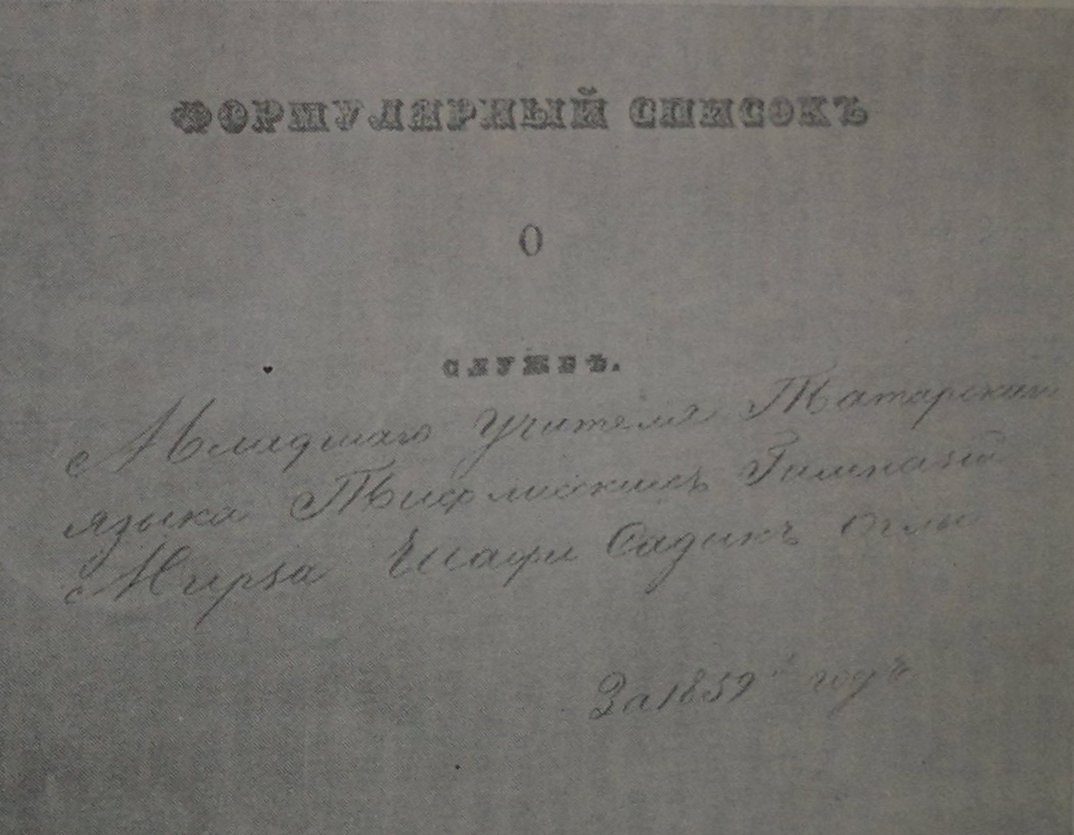 ФОРМУЛЯРНЫЙ СПИСОКЪ
О
СЛУЖБѢ.
Младшаго Учителя Татарскаго
языка Тифлисской Гимназіи
Мирза Шафи Садыкъ Оглы
За 1852й годъ